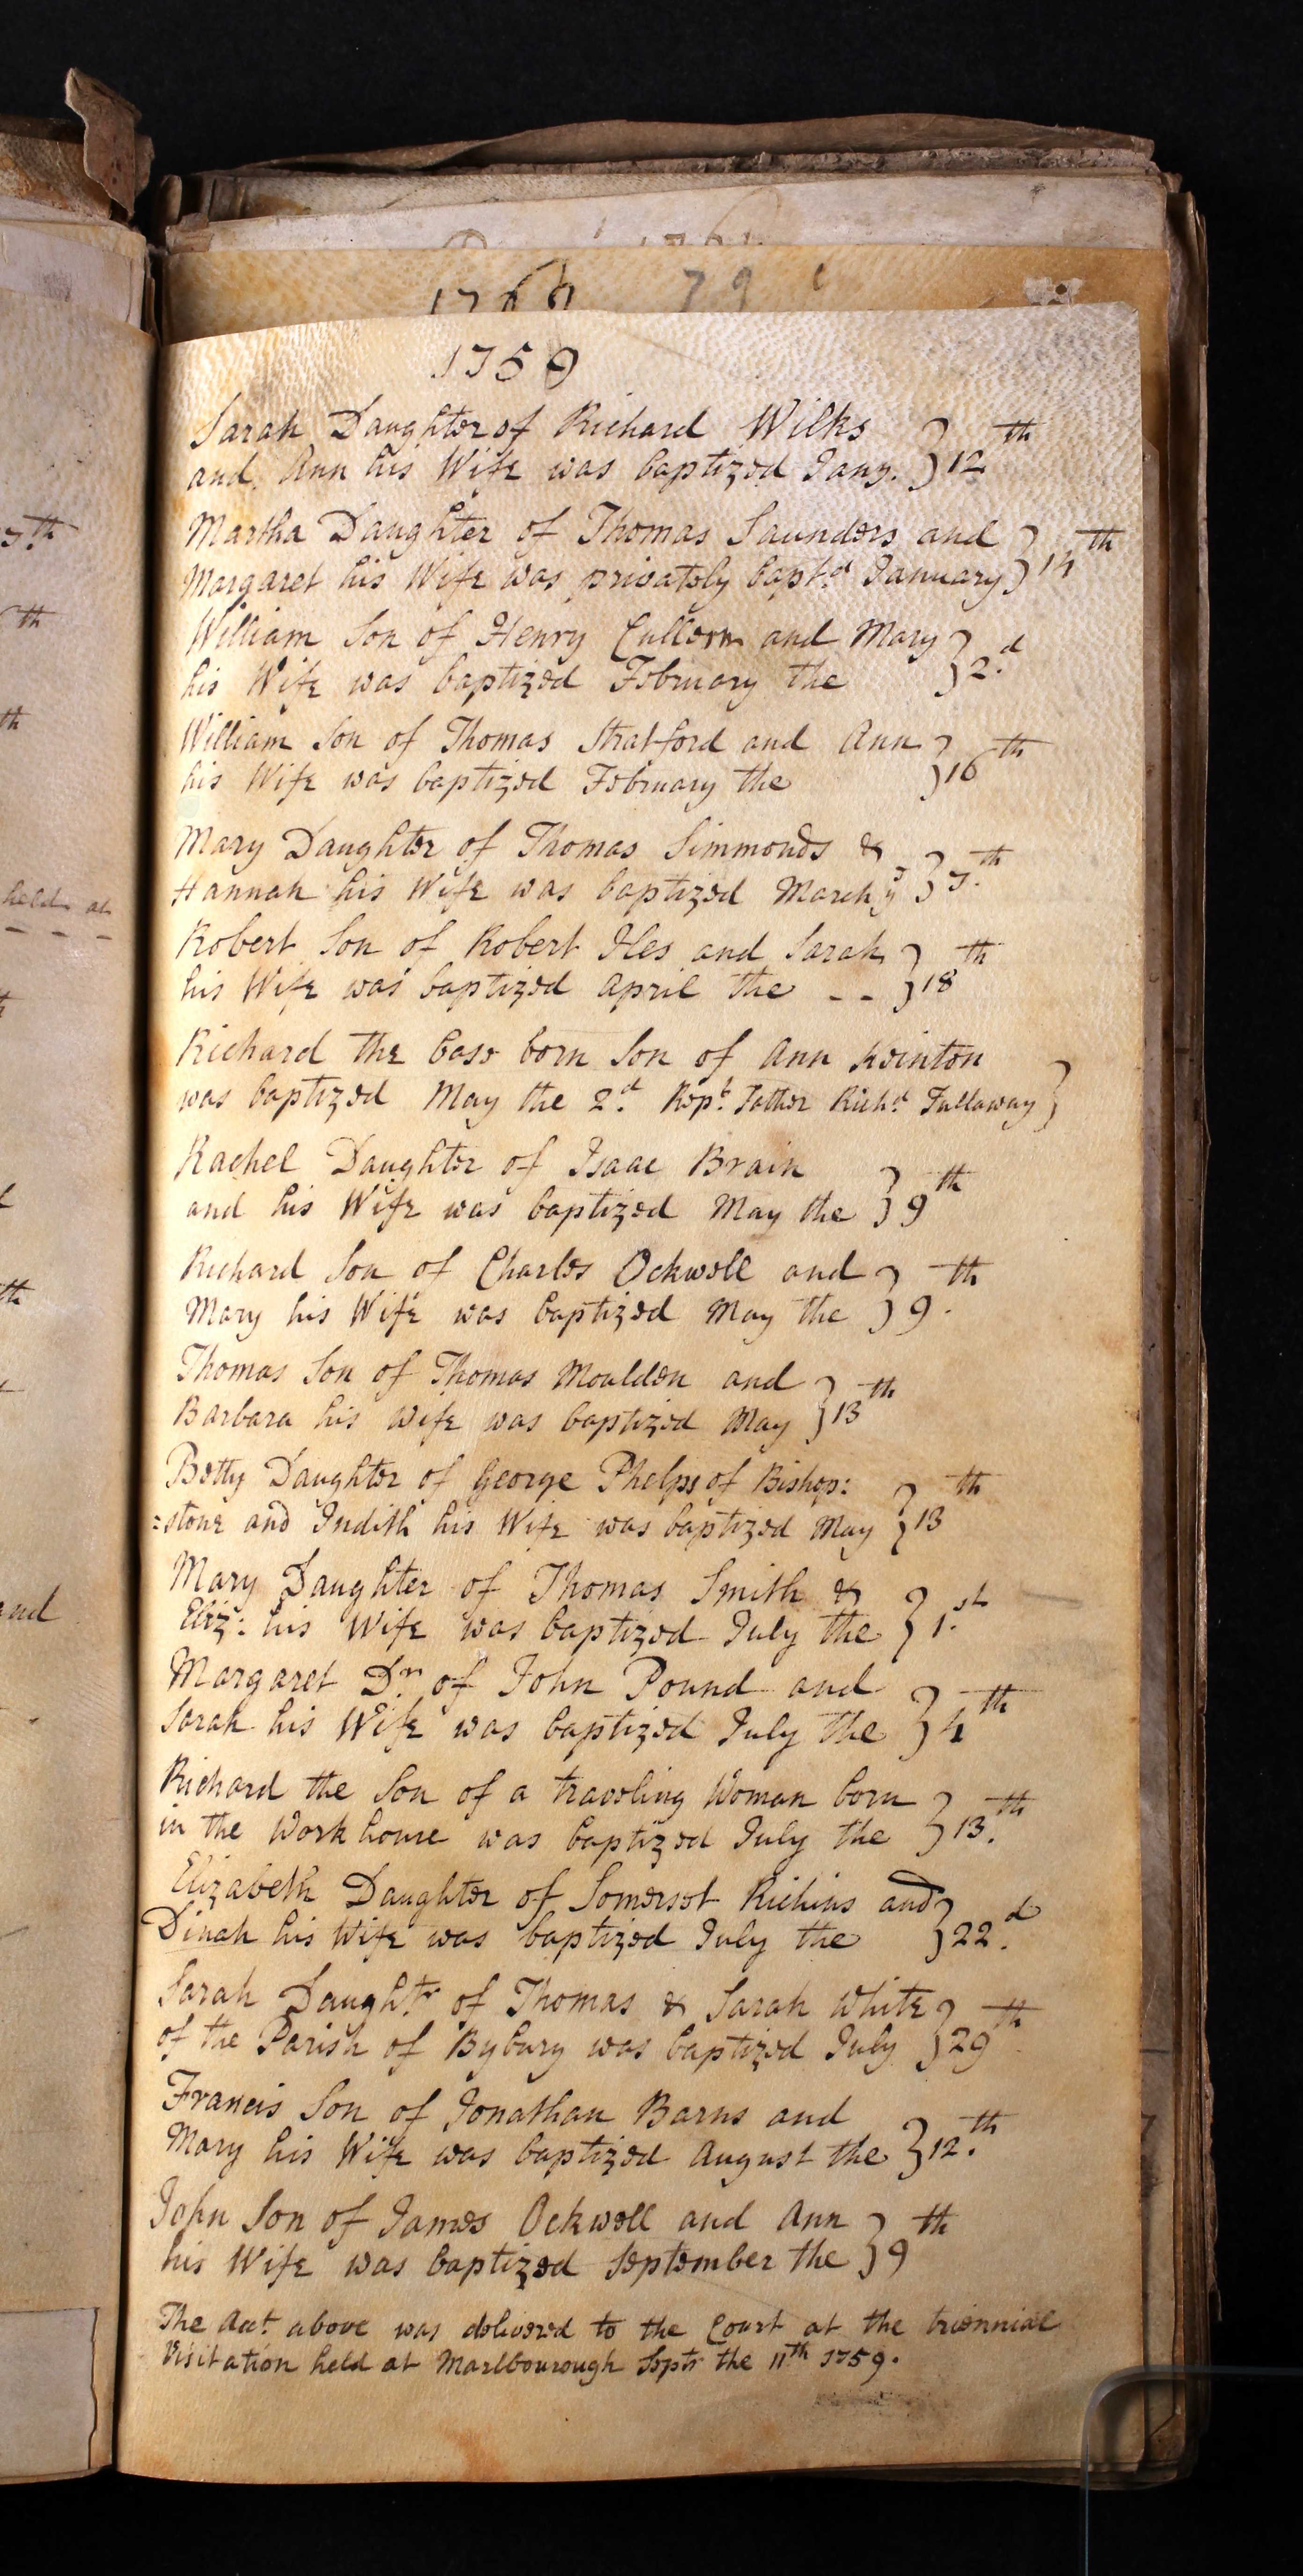 1759
Sarah Daughter of Richard Wilks
and Ann his Wife was baptized Jany. } 12th
Martha Daughter of Thomas Saunders and
Margaret his Wife was privately bapt.d January } 14th
William Son of Henry Cullorn and Mary
his Wife was baptized February the } 2.d
William Son of Thomas Stratford and Ann
his Wife was baptized February the } 16th
Mary Daughter of Thomas Simmonds &
Hannah his Wife was baptized March ye } 7.th
Robert Son of Robert Iles and Sarah
his Wife was baptized April the - - } 18th
Richard the base born Son of Ann Keinton
was baptized May the 2.d Rep.t Father Rich.d Fallaway }
Rachel Daughter of Isaac Brain
and his Wife was baptized May the } 9th
Richard Son of Charles Ockwell and
Mary his Wife was baptized May the } 9.th
Thomas Son of Thomas Moulden and
Barbara his Wife was baptized May } 13th
Betty Daughter of George Phelps of Bishop:
=stone and Judith his Wife was baptized May } 13th
Mary Daughter of Thomas Smith &
Eliz: his Wife was baptized July the } 1.st
Margaret D.r of John Pound and
Sarah his Wife was baptized July the } 4th
Richard the Son of a traveling Woman born
in the Work house was baptized July the } 13.th
Elizabeth Daughter of Somerset Richins and
Dinah his Wife was baptized July the } 22.d
Sarah Daught.r of Thomas & Sarah White
of the Parish of Bybury was baptized July } 29th
Francis Son of Jonathan Barns and
Mary his Wife was baptized August the } 12.th
John Son of James Ockwell and Ann
his Wife was baptized September the } 9th
The Acct. above was delivered to the Court at the triennial
Visitation held at Marlbourough Septr the 11th 1759.